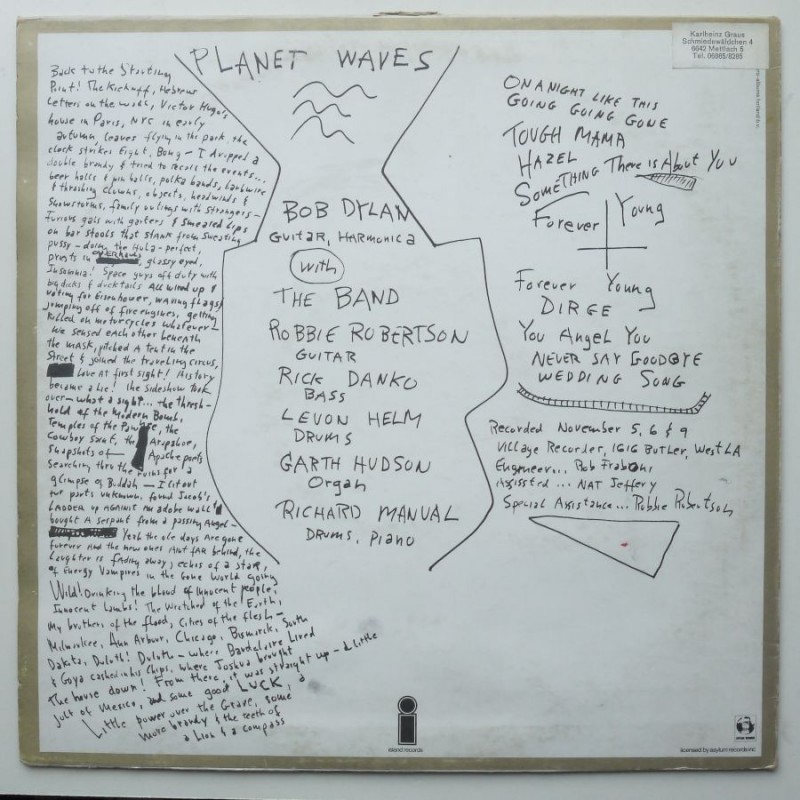 PLANET WAVES
Back to the Starting
Point! The Kickoff, Hebrew
Letters on the wall, Victor Hugo's
house in Paris, NYC in early
autumn leaves flying in the park, the
clock strikes Eight, Bong - I dropped a
double brandy & tried to recall the events...
beer halls & pin balls, polka bands, barbwire
& thrashing clowns, objects, headwinds &
Snowstorms, family outings with strangers -
Furious gals with garters & Smeared Lips
on bar stools that stank from sweating
pussy - doing the Hula - perfect,
priests in glassy eyed,
Insomnia! Space guys off duty with
big dicks & ducktails All wired up &
voting for Eisenhower, waving flags &
jumping off of fire engines, getting
killed on motorcycles whatever -
We sensed each other beneath
the mask, pitched A tent in the
Street & joined the traveling circus,
Love at first sight! History
became a Lie! the sideshow took
over - what a sight... the thresh-
hold of the Modern Bomb,
Temples of the Pawnee, the
Cowboy Saint, the Arapahoe,
Snapshots of - Apache poets
Searching thru the ruins for a
glimpse of Buddah - I lit out
for parts unknown, found Jacob's
LADDER up AGAINST AN adobe wall &
bought A serpent from a passing Angel -
Yeah the ole days Are gone
forever And the new ones Aint far behind, the
Laughter is fading away, echos of a star,
of Energy Vampires in the Gone World going
Wild! Drinking the blood of innocent people,
Innocent Lambs! The Wretched of the Earth,
My brothers of the flood, Cities of the flesh -
Milwaukee, Ann Arbour, Chicago, Bismarck, South
Dakota, Duluth! Duluth - where Baudelaire Lived
& Goya cashed in his Chips, where Joshua brought
The house down! From there, it was straight up - a little
jolt of Mexico, and some good LUCK, a
Little power over the Grave, some
More brandy & the teeth of
a Lion & a compass
BOB DYLAN
GUITAR, HARMONICA
with
THE BAND
ROBBIE ROBERTSON
GUITAR
RICK DANKO
BASS
LEVON HELM
DRUMS
GARTH HUDSON
Organ
RICHARD MANUAL
DRUMS, Piano
Karlheinz Graus
Schmiedewäldchen 4
6642 Mettlach 5
Tel. 06865/8285
ON A NIGHT LIKE THIS
GOING GOING GONE
TOUGH MAMA
HAZEL
SOMETHING There is About You
Forever Young
Forever Young
DIRGE
You Angel You
NEVER SAY GOODBYE
WEDDING SONG
Recorded November 5, 6 & 9
Village Recorder, 1616 Butler, West LA
Engineer... Rob Fraboni
Assissted... NAT Jeffery
Special Assistance... Robbie Robertson
island records
licensed by asylum records inc